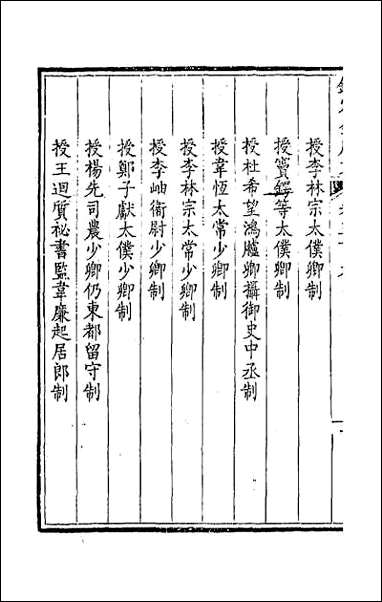 授李林宗太僕卿制
授竇鍔等太僕卿制
授杜希望鴻臚卿攝御史中丞制
授韋恆太常少卿制
授李林宗太常少卿制
授李岫衛尉少卿制
授鄭子獻太僕少卿制
授楊先司農少卿仍東都留守制
授王迴質祕書監韋廉起居郎制